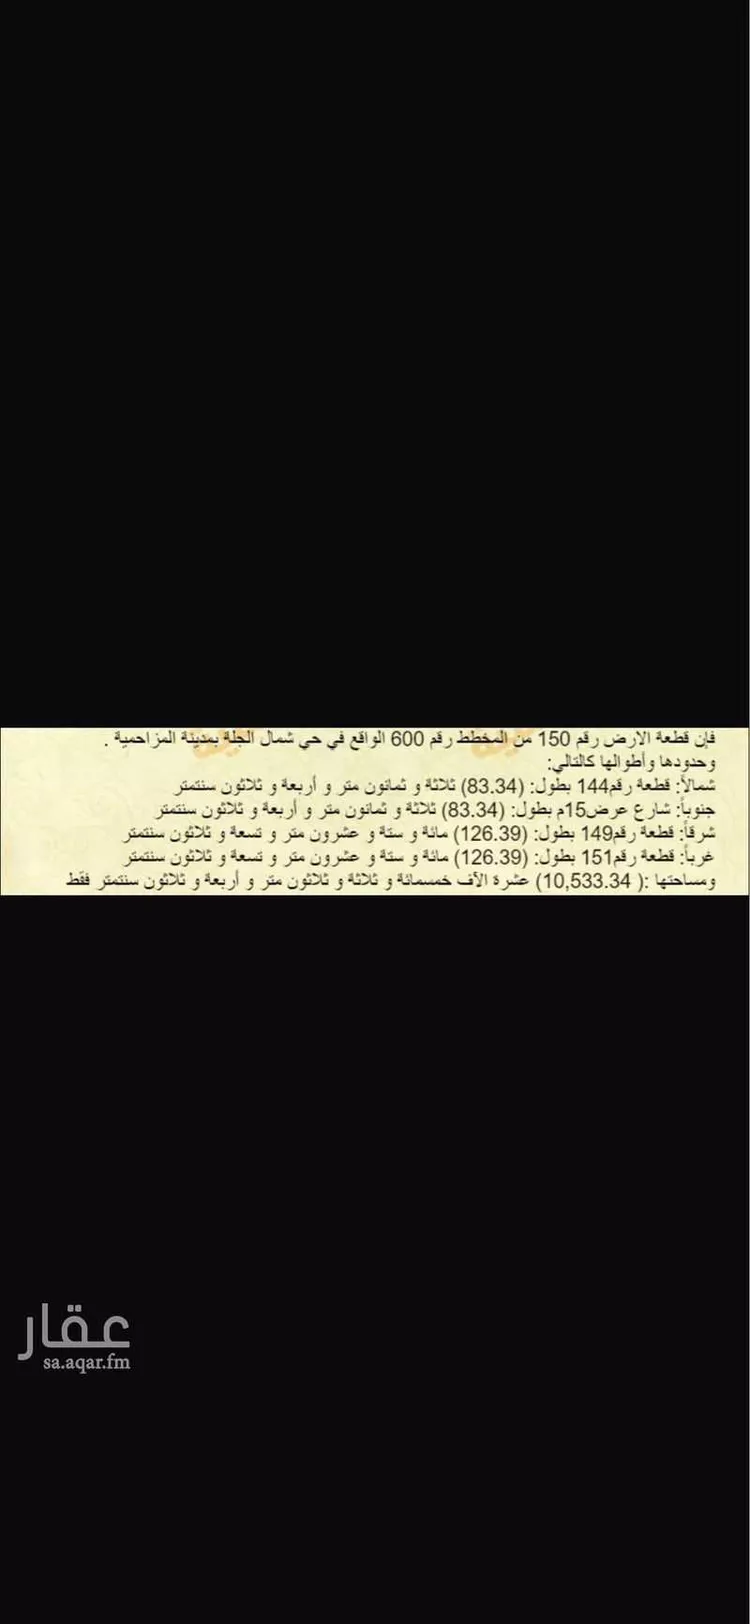 فإن قطعة الارض رقم 150 من المخطط رقم 600 الواقع في حي شمال الجلة بمدينة المزاحمية .
وحدودها وأطوالها كالتالي:
شمالاً: قطعة رقم144 بطول: (83.34) ثلاثة و ثمانون متر و أربعة و ثلاثون سنتمتر
جنوباً: شارع عرض15م بطول: (83.34) ثلاثة و ثمانون متر و أربعة و ثلاثون سنتمتر
شرقاً: قطعة رقم149 بطول: (126.39) مائة و ستة و عشرون متر و تسعة و ثلاثون سنتمتر
غرباً: قطعة رقم151 بطول: (126.39) مائة و ستة و عشرون متر و تسعة و ثلاثون سنتمتر
ومساحتها :( 10,533.34) عشرة الآف خمسمائة و ثلاثة و ثلاثون متر و أربعة و ثلاثون سنتمتر فقط
عقار
sa.aqar.fm